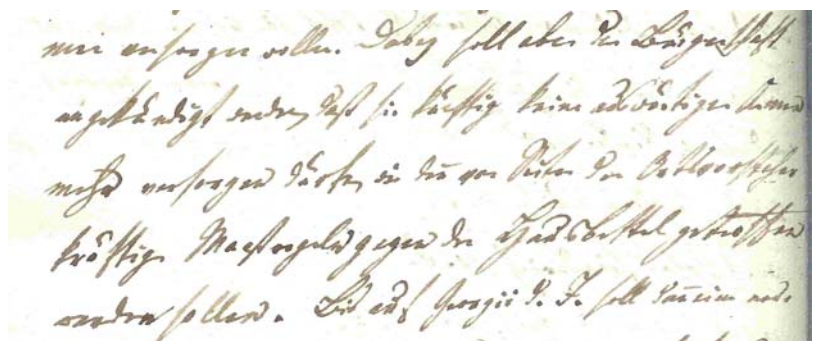 men versorgen wollen. Dabey soll aber der Bürgerschaft
angekündigt werden, daß sie künftig keine auswärtigen Armen
mehr versorgen dürfen, in dem von Seiten der Ortsvorsteher
kräftige Maaßregeln gegen den Hausbettel getroffen
werden sollen. Bis auf Georgii d. J. soll